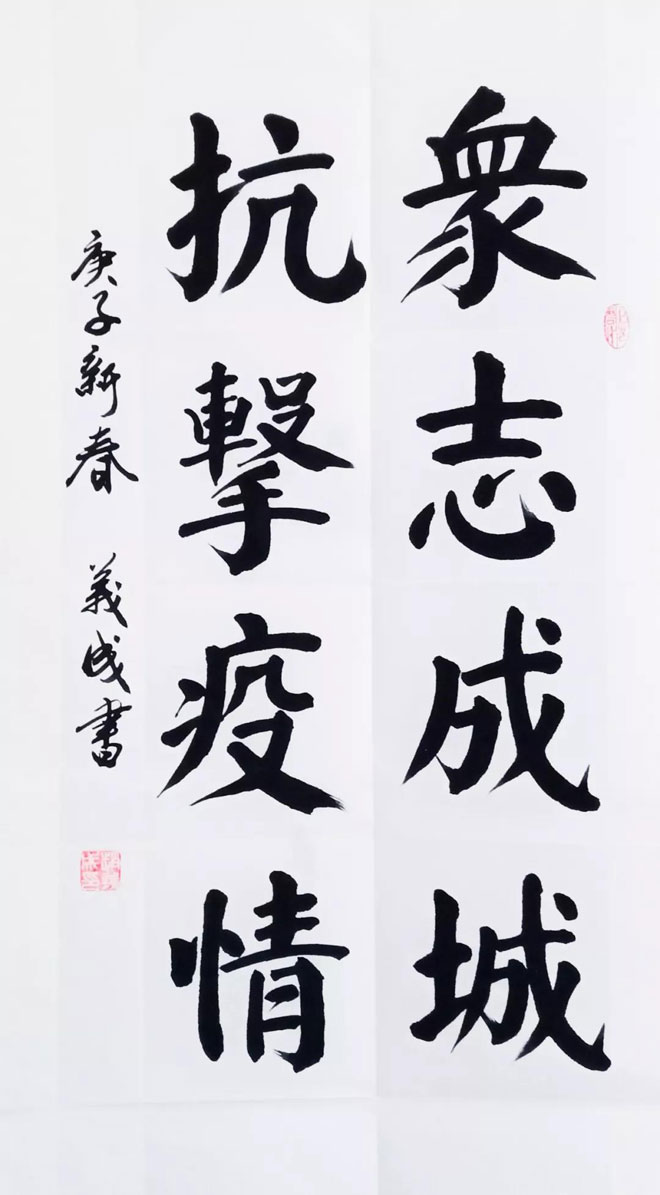 眾志成城
抗擊疫情
庚子新春 義成書